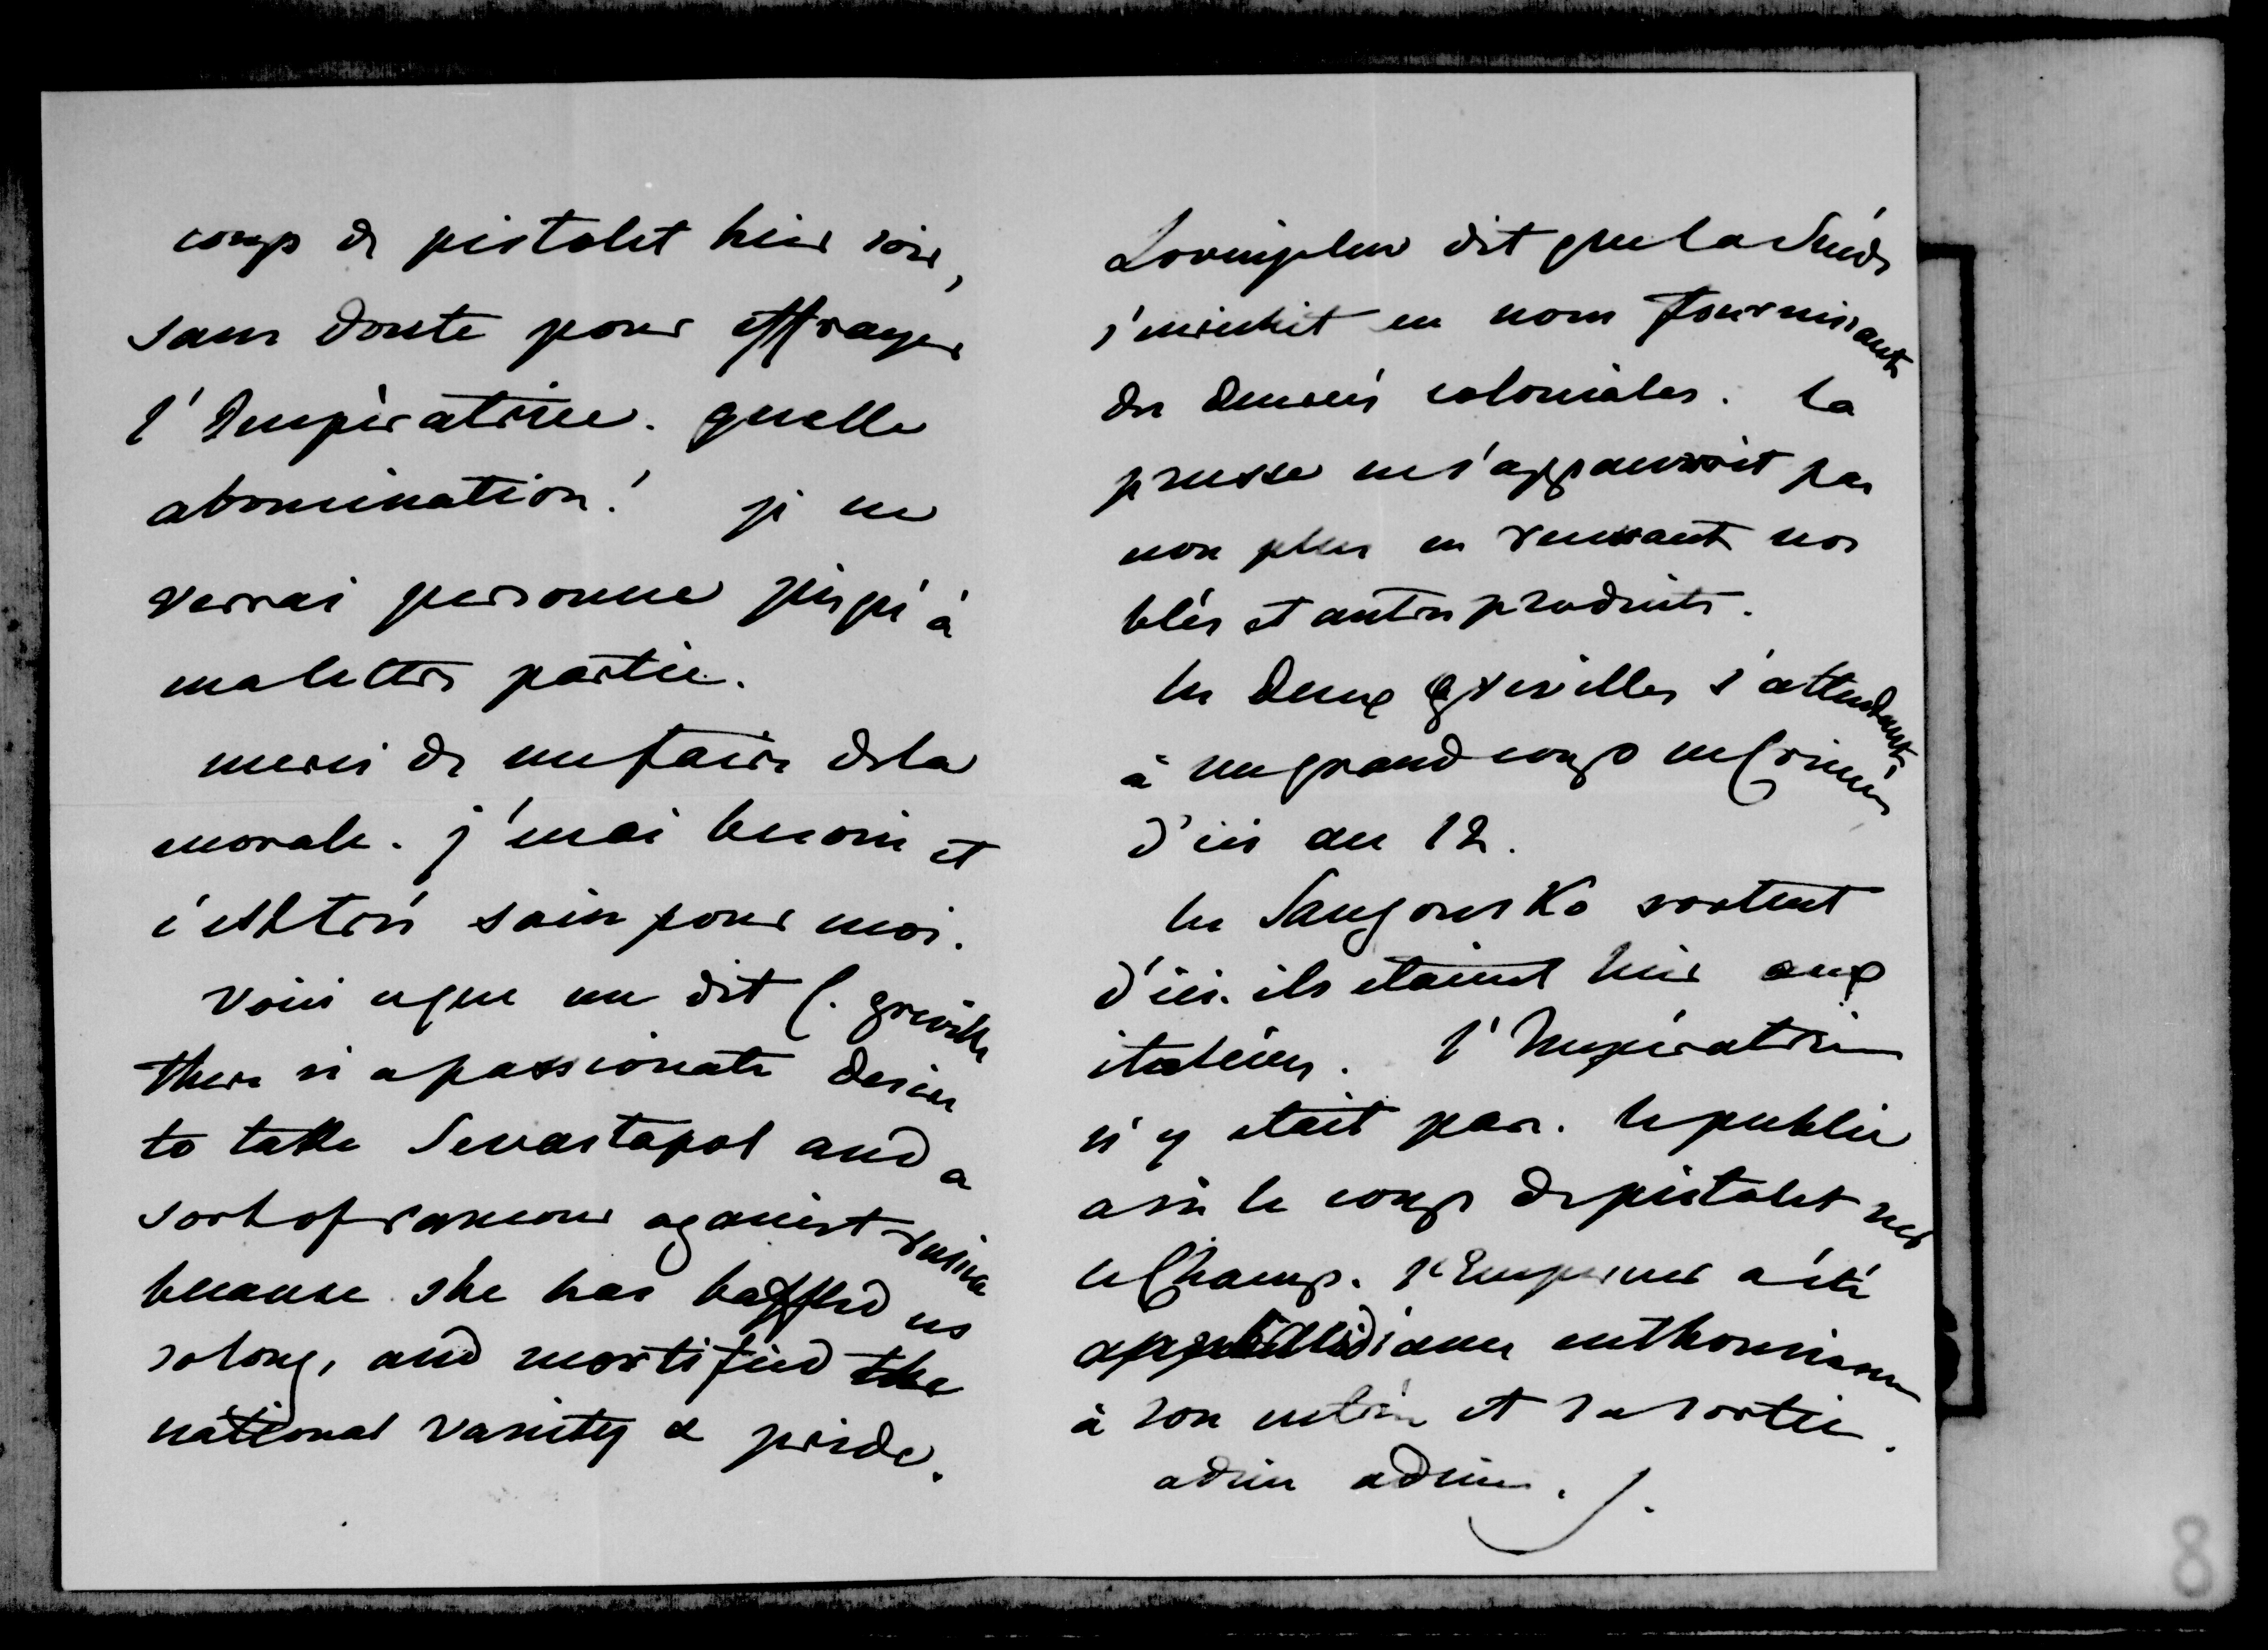 coup de pistolet hier soir,
sans doute pour effrayer
l'Impératrice. quelle
abomination! je ne
verrai personne jusqu'à
ma lettre partie.
merci de me faire de la
morale. j'en ai besoin et
c'est très sain pour moi.
voici ce que me dit C. greville
there is a passionate desire
to take Sevastapol and a
sort of rancour against russia
because she has baffled us
so long, and mortified the
national vanity & pride.
dit que la Suède
s'enrichit en nous fournissant
des denrées coloniales. la
prusse ne s'appauvrit pas
non plus en vous
blés et autres produits.
les deux greville s'attendent
à un grand coup en Crimée
d'ici au 12.
les Sangousko sortent
d'ici. ils étaient hier aux
italiens. l'Impératrice
n'y était pas. le public
a su le coup de pistolet sur
le Champ. l'Empereur a été
applaudi avec enthousiasme
à son entrée et sa sortie.
adieu adieu.
8